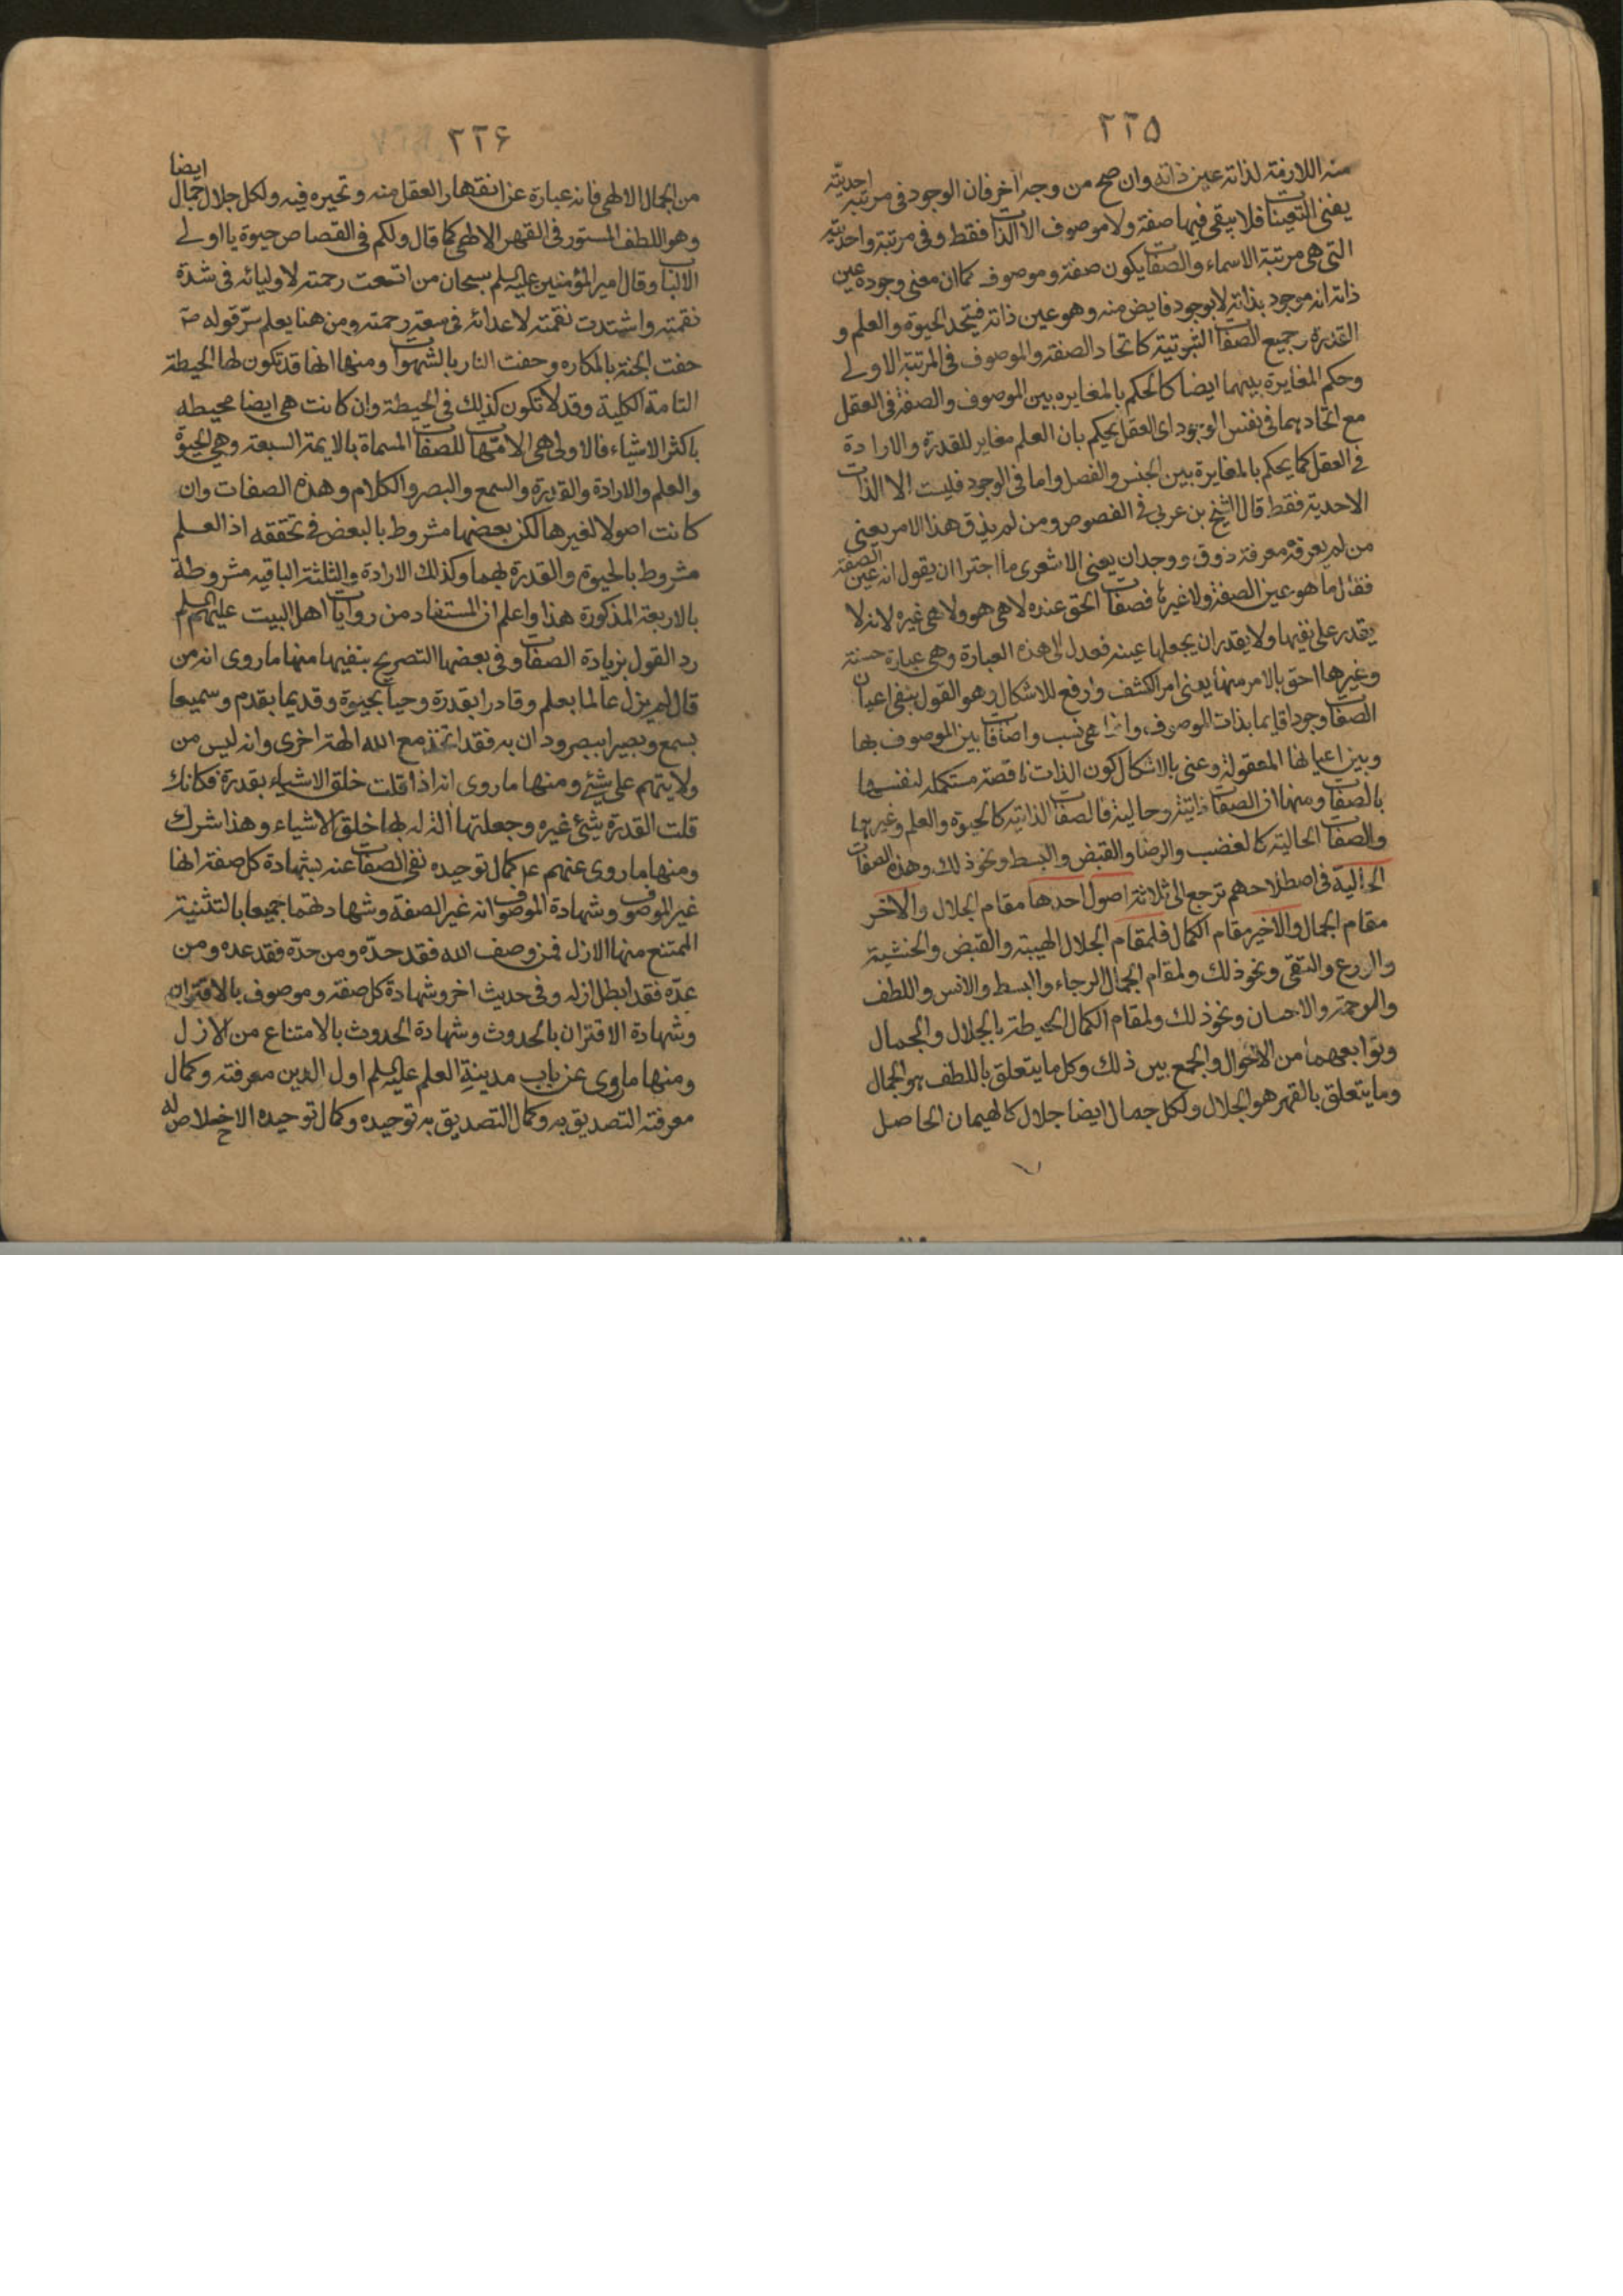 ٢٢۵
منه اللازمة لذاته عين ذاته وان صح من وجه اخر فان الوجود فى مرتبه احديته
يفنى التعينات فلا يبقى فيها صفة ولا موصوف الا الذات فقط وفى مرتبة واحديته
التى هى مرتبة الاسماء والصفات يكون صفة وموصوف كما ان معنى وجوده عين
ذاته انه موجود بذاته لا بوجود فايض منه وهو عين ذاته فيتحد الحيوة والعلم و
القدرة وجميع الصفات الثبوتية كاتحاد الصفة والموصوف فى المرتبة الاولى
وحكم المغايرة بينهما ايضا كالحكم بالمغايره بين الموصوف والصفة فى العقل
مع اتحادهما فى نفس الوجود اى العقل يحكم بان العلم مغاير للقدرة والارادة
فى العقل كما يحكم بالمغايرة بين الجنس والفصل واما فى الوجود فليست الا الذات
الاحدية فقط قال الشيخ بن عربى فى الفصوص ومن لم يذق هذا الامر يعنى
من لم يعرفه معرفة ذوق ووجدان يعنى الاشعرى ما اجترا ان يقول انه عين الصفة
فقال ما هو عين الصفة ولا غيرها فصفات الحق عنده لا هى هو ولا هى غيره لانه لا
يقدر على نفيها ولا يقدر ان يجعلها عينه فعدل الى هذه العبارة وهى عبارة حسنة
وغيرها احق بالامر منها يعنى امر الكشف وارفع للاشكال وهو القول بنفى اعيان
الصفات وجودا قايما بذات الموصوف وانما هى نسب واضافات بين الموصوف بها
وبين اعيانها المعقولة وعنى بالاشكال كون الذات ناقصة مستكملة لنفسها
بالصفات ومنها ان الصفات ذاتية وحالية فالصفات الذاتية كالحيوة والعلم وغيرهما
والصفات الحالية كالغضب والرضا والقبض والبسط ونحو ذلك وهذه الصفات
الحالية فى اصطلاحهم ترجع الى ثلاثة اصول احدها مقام الجلال والاخر
مقام الجمال والاخير مقام الكمال فلمقام الجلال الهيبة والقبض والخشية
والورع والتقى ونحو ذلك ولمقام الجمال الرجاء والبسط والانس واللطف
والرحمة والاحسان ونحو ذلك ولمقام الكمال الحيطة بالجلال والجمال
وتوابعهما من الاحوال والجمع بين ذلك وكل ما يتعلق باللطف هو الجمال
وما يتعلق بالقهر هو الجلال ولكل جمال ايضا جلال كالهيمان الحاصل
٢٢۶
من الجمال الالهى فانه عبارة عن انقهار العقل منه وتحيره فيه ولكل جلال جمال ايضا
وهو اللطف المستور فى القهر الالهى كما قال ولكم فى القصاص حيوة يا اولى
الالباب وقال امير المؤمنين عليه السلم سبحان من اتسعت رحمته لاوليائه فى شدة
نقمته واشتدت نقمته لاعدائه فى سعة رحمته ومن هنا يعلم سر قوله ص
حفت الجنة بالمكاره وحفت النار بالشهوات ومنها انها قد تكون لها الحيطة
التامة الكلية وقد لا تكون كذلك فى الحيطة وان كانت هى ايضا محيطه
باكثر الاشياء فالاولى هى الامهات للصفات المسماة بالايمة السبعة وهى الحيوة
والعلم والارادة والقدرة والسمع والبصر والكلام وهذه الصفات وان
كانت اصولا لغيرها لكن بعضها مشروط بالبعض فى تحققه اذ العلم
مشروط بالحيوة والقدرة بهما وكذلك الارادة والثلثة الباقيه مشروطة
بالاربعة المذكورة هذا واعلم ان المستفاد من روايات اهل البيت عليهم السلم
رد القول بزيادة الصفات وفى بعضها التصريح بنفيها منها ما روى انه من
قال لم يزل عالما بعلم وقادرا بقدرة وحيا بحيوة وقديما بقدم وسميعا
بسمع وبصيرا ببصر ودان به فقد اتخذ مع الله الهة اخرى وانه ليس من
ولايتهم على شئ ومنها ما روى انه اذا قلت خلق الاشياء بقدرة فكانك
قلت القدرة شئ غيره وجعلتها الة له بها خلق الاشياء وهذا شرك
ومنها ما روى عنهم ع كمال توحيده نفى الصفات عنه بشهادة كل صفة انها
غير الموصوف وشهادة الموصوف انه غير الصفة وشهادتهما جميعا بالتثنية
الممتنع منها الازل فمن وصف الله فقد حدّه ومن حدّه فقد عده ومن
عدّه فقد ابطل ازله وفى حديث اخر وشهادة كل صفة وموصوف بالاقتران
وشهادة الاقتران بالحدوث وشهادة الحدوث بالامتناع من الازل
ومنها ما روى عن باب مدينة العلم عليه السلم اول الدين معرفته وكمال
معرفته التصديق به وكمال التصديق به توحيده وكمال توحيده الاخلاص له